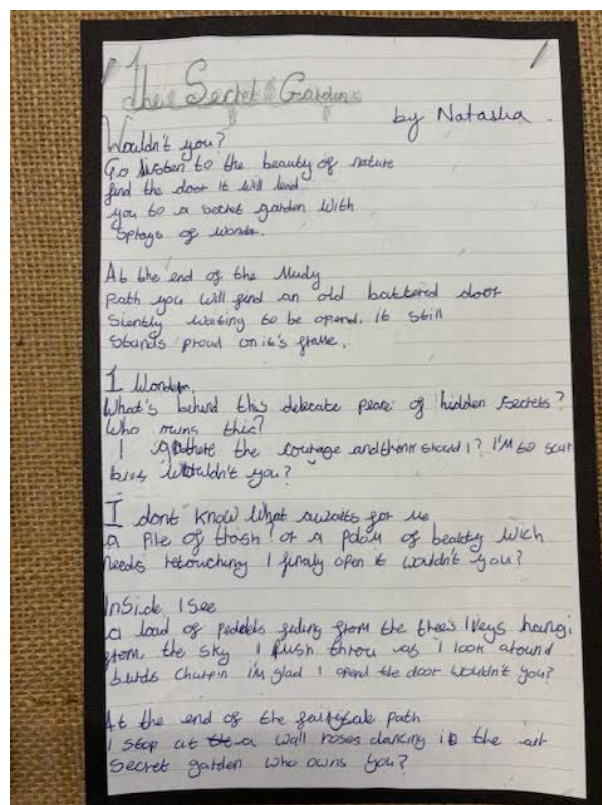 The Secret Garden
by Natasha.
Wouldn't you?
Go listen to the beauty of nature
find the door it will lead
you to a secret garden with
Sprays of wonder.
At the end of the Mudy
Path you will find an old battered door
Siently waiting to be opend. it still
Stands proud on it's frame.
I Wonder,
What's behind this delecate peace of hidden secrets?
Who owns this?
I gathere the courage and think should I? I'm to scar
but wouldn't you?
I dont know what awaits for me
a pile of trash? or a of beatty wich
Needs retouching I finaly open it wouldn't you?
InSide I see
a load of peddels from the tree's Iveys hangi
from the sky I Rush throu as I look around
burds Churpin i'm glad I opend the door wouldn't you?
At the end of the fairytale path
I stop at a wall roses dancing in the air
Secret garden who owns you?